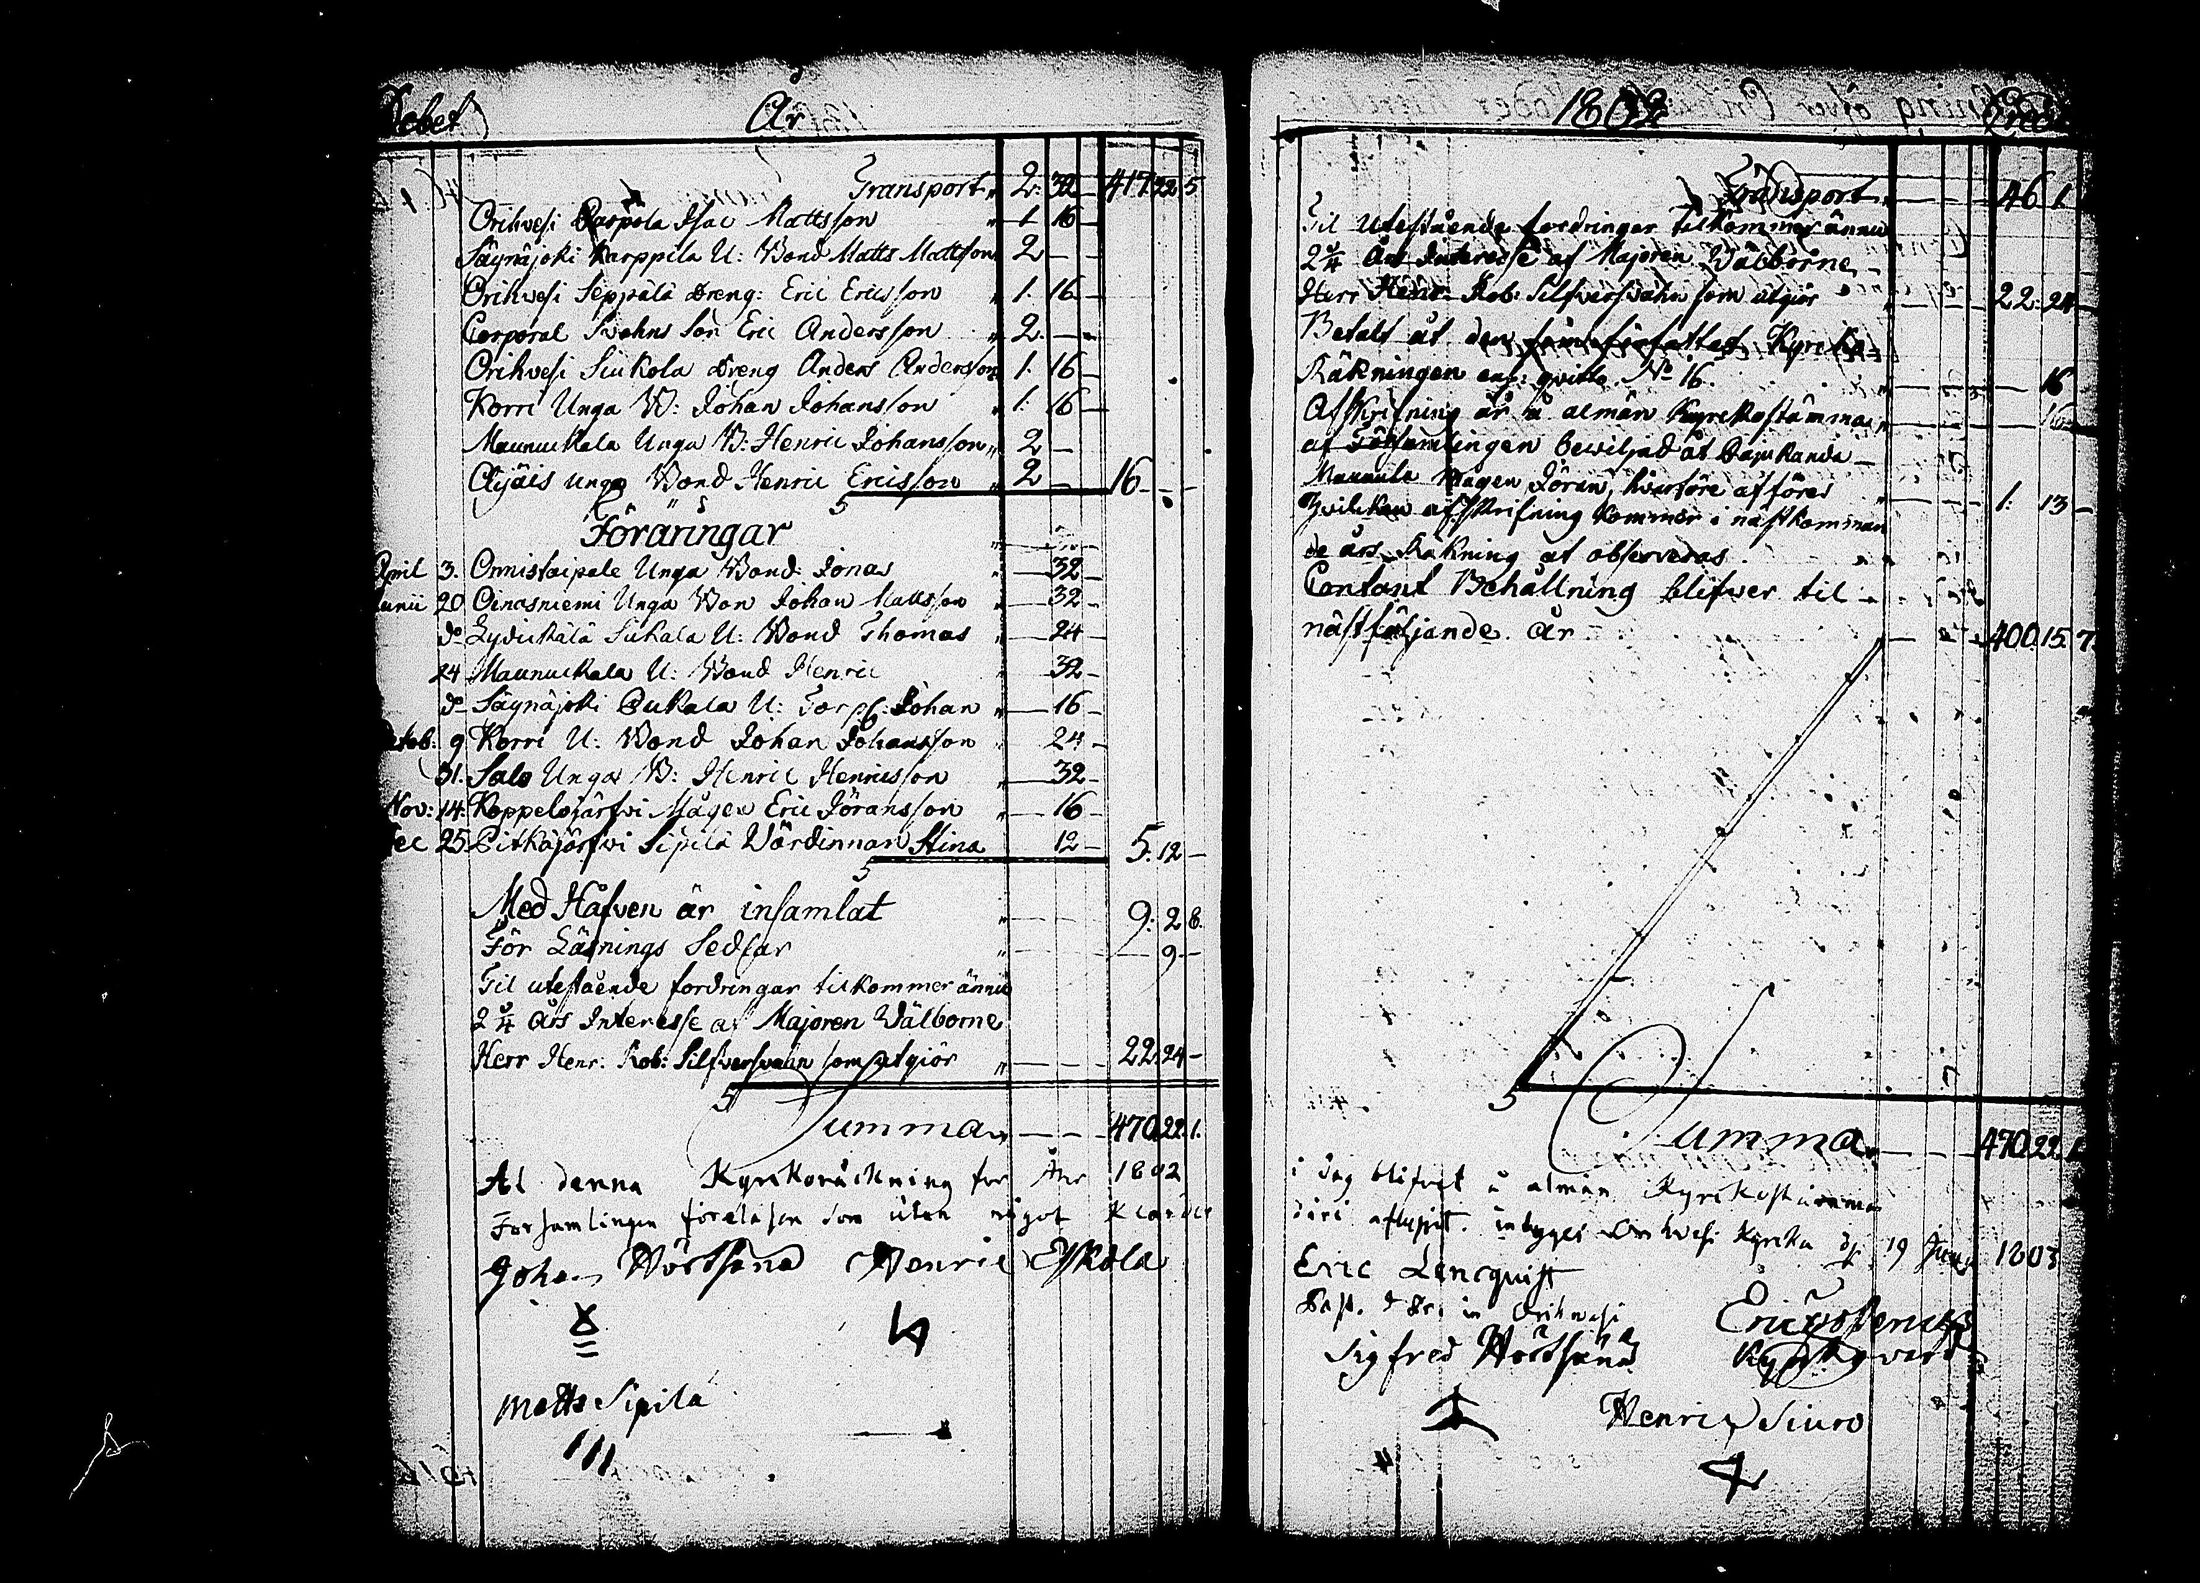 Debet År
Transport „ 2. 32 — 417. 22. 5
Orihvesi Parpola Isac Mattsson „ 1. 16 —
Säynäjoki Karppila U: Bond Matts Mattsson 2 — —
Orihvesi Seppälä Dreng: Eric Ericsson „ 1. 16 —
Corporal Svahns Son Eric Andersson „ 2. — —
Orihvesi Siukola Dreng Anders Andersson 1. 16 —
Korri Unga B: Johan Johansson „ 1. 16 —
Maunukala Unga B: Henric Johansson „ 2 —
Äijäis unga Bond Henric Ericsson „ 2 — 16 — —
Föräringar
April 3. Onnistaipale Unga Bond: Jonas „ — 32 —
Junii 20 Oinasniemi Unga Bon Johan Mattsson „ — 32 —
do Lydickälä Sukala U: Bond Thomas „ — 24 —
24 Maunukala U: Bond Henric — 32 —
do Säynäjoki Pukala U: Torp: Johan „ — 16 —
Octob: 9 Korri U: Bond Johan Johansson „ 24 —
31. Salo Unga B: Henric Henricsson „ — 32 —
Nov: 14. Koppelojärfvi Mågen Eric Jöransson „ — 16 —
Dec 25 Pitkäjärfvi Sipilä Värdinnan Stina 12 — 5. 12 —
Med Håfven är insamlat „ — — 9: 2 8.
För Läsnings Sedlar „ — 9 —
Til utestående fordringar tilkommer ännu
2 3/4 års Interesse af Majoren Välborne
Herr Henr: Rob: Silfversvahn som utgiör „ — — — 22. 24 —
Summa „ — — — 470. 22. 1.
At denna Kyrkoräckning for Åhr 1802
Forsamlingen föreläsen som utan något
Johan Hörtsänä Henric Eskola
Matts Sipilä
1802 Credit
Transport „ — — — 46 1.
Til Utestående fordringar tilkommer ännu
2 3/4 års Interesse af Majoren Välborne
Herr Henr. Rob: Silfversvahn som utgiör „ — — — 22. 24 —
Betalt åt den som författat Kyrko
Räkningen enl: qvitto No 16. „ — — — 16
Afskrifning är å almän Kyrkostämma „ — — — 16 —
af Församlingen bewiljad åt Pajukanda
Maunula Mågen Jöran, hvarföre afföres „ — — — 1. 13 —
Hvilcken afskrifning kommer i nästkomman
de års Räkning at observeras.
Contant Behållning blifver til
nästföljande år — — — 400. 15. 7.
Summa — — — 470. 22. 1
i dag blifvit å almän Kyrkostämma
intygas Orihvesi Kyrka d. 19 1803
Eric Lencquist
Past. in Orihvesi
Sigfred Hörtsänä
Henric Siuro